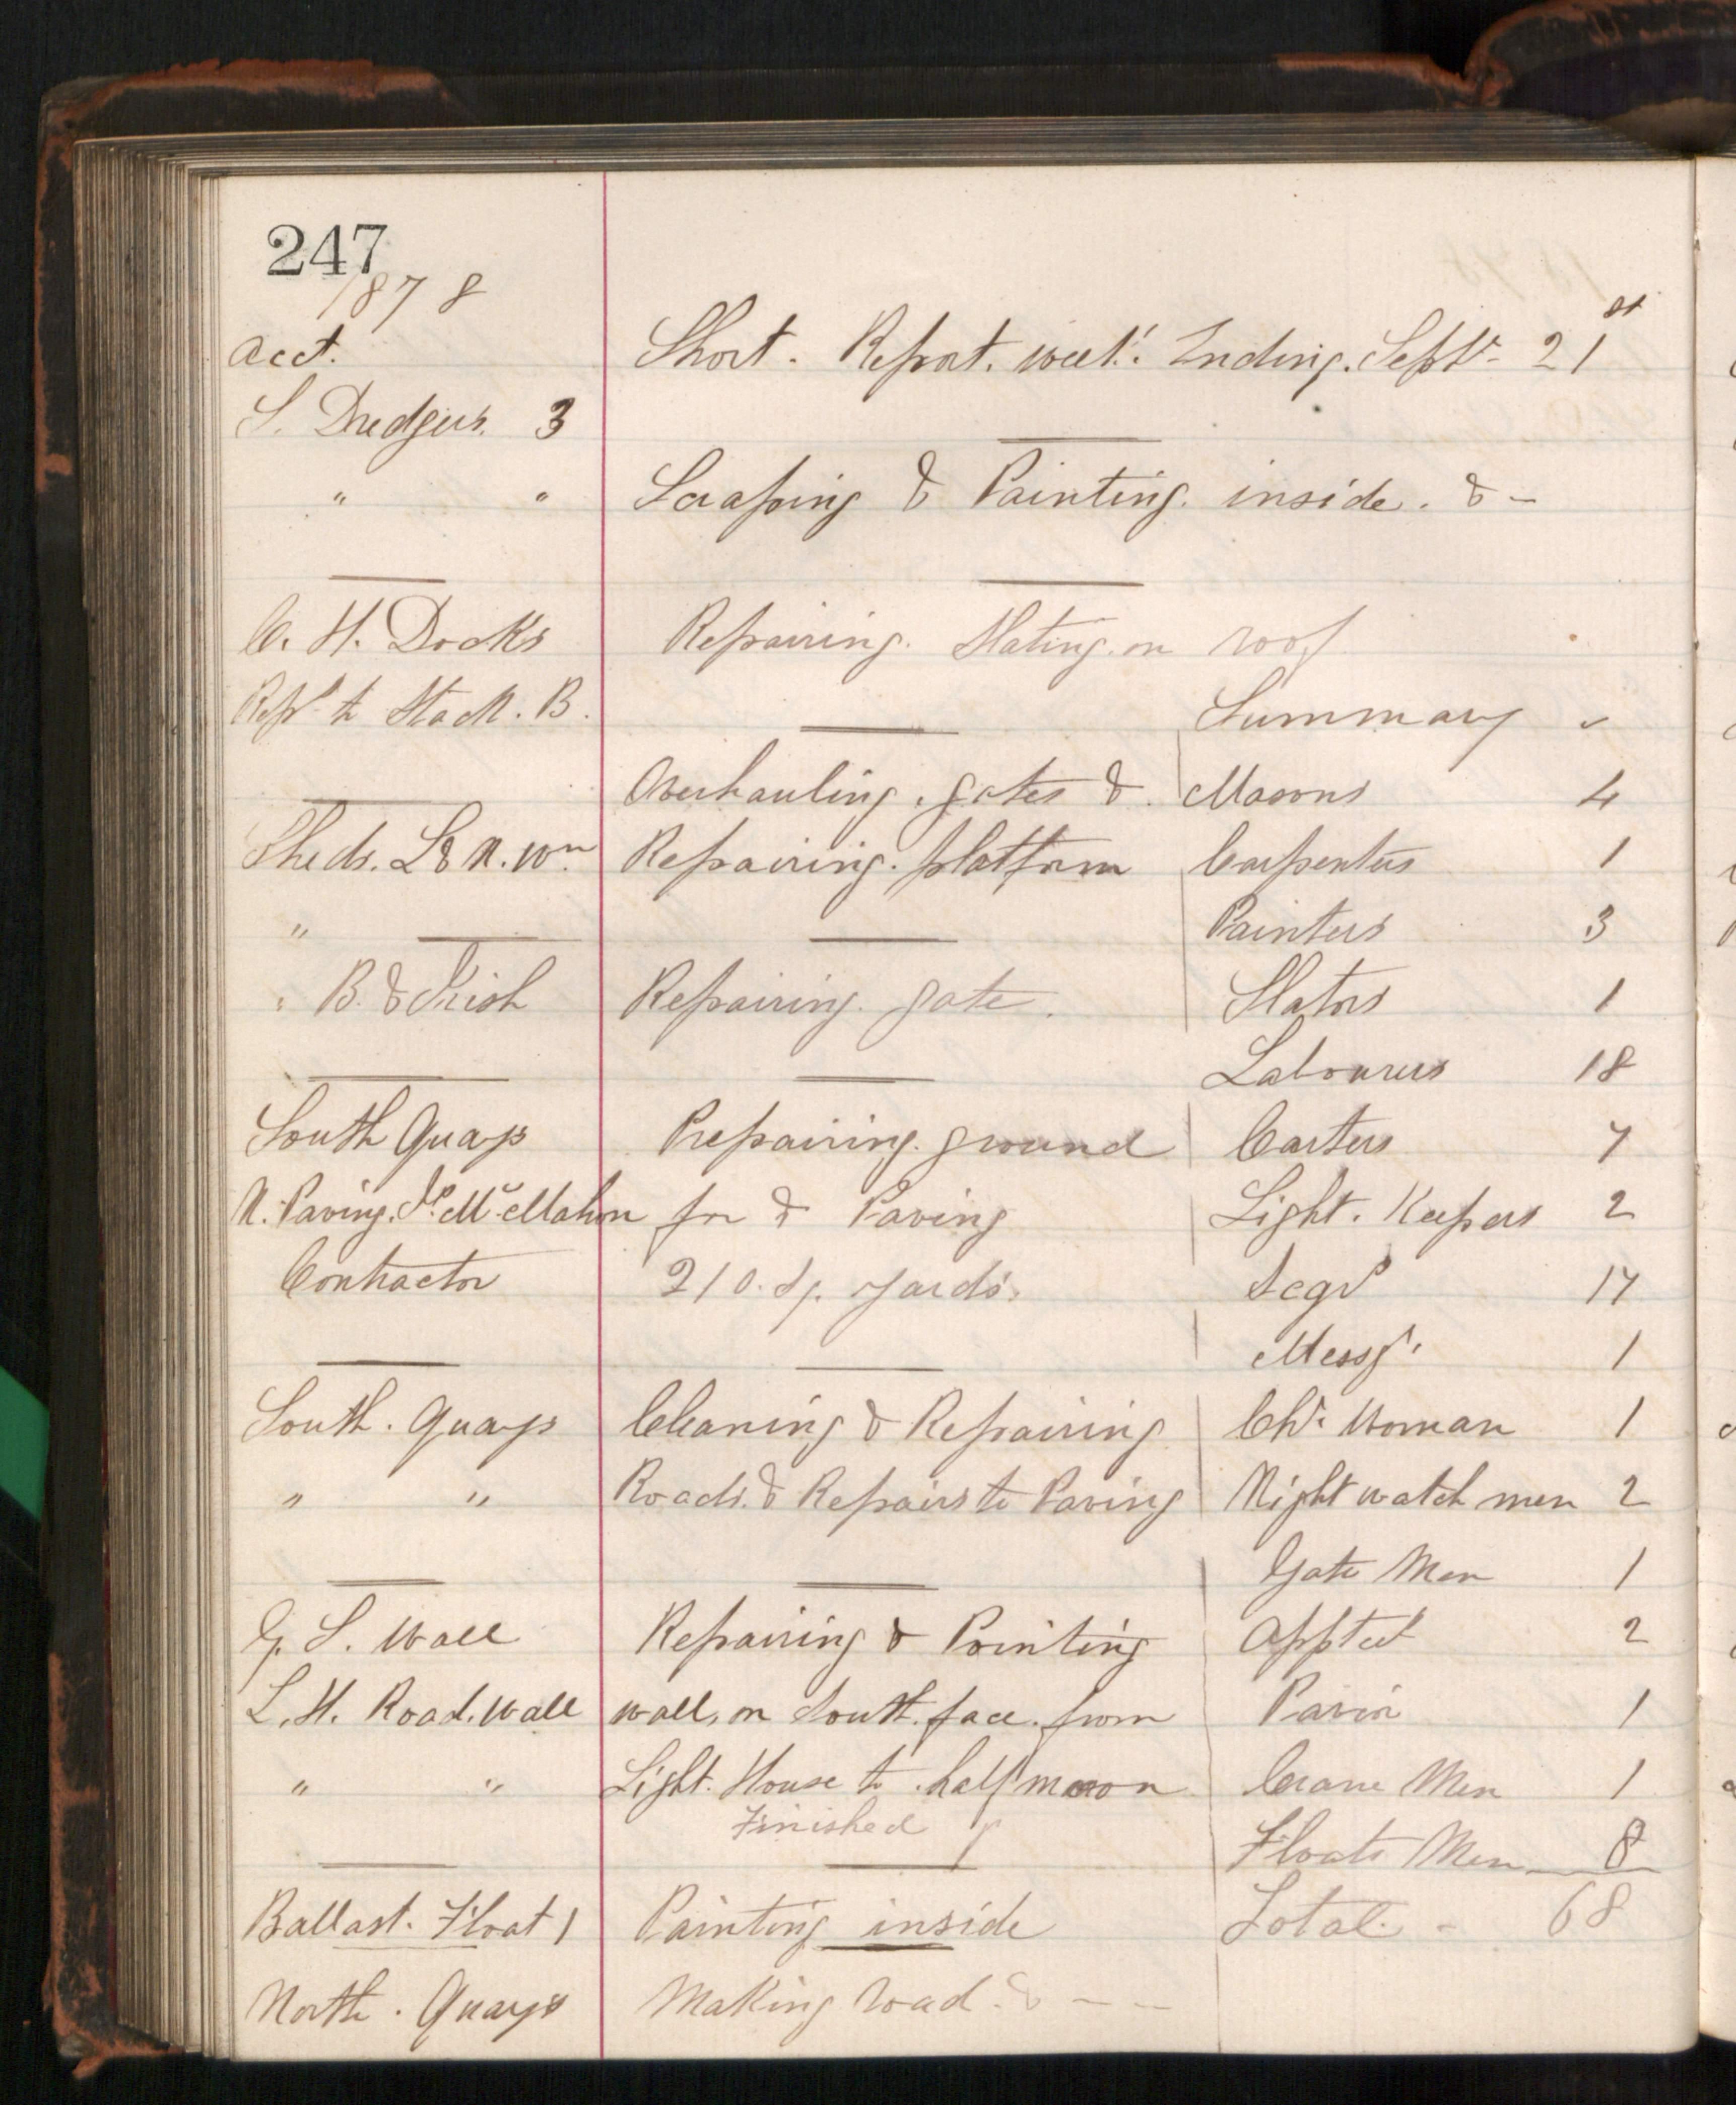 247
1878
Acct. Short. Report. week: Ending. Septr. 21st
S. Dredgers. 3
" " Scraping & Painting. inside. & -
C. H. Docks Repairing. Slating. on roof
Repr to Stack. B. Summary
Overhauling. gates & Masons 4
Sheds. L & N. Wn Repairing. platform Carpenters 1
" Painters 3
" B. & Irish Repairing. gate. Slators 1
Labourers 18
South Quays Prepairing. ground Carters 7
N. Paving. Mc Mahon for & Paving Light. Keepers 2
Contractor 210. Sq. Yards. 17
Messr. 1
South. Quays Cleaning & Repairing Chr. Woman 1
" " Roads. & Repairs to Paving Night watch men 2
Gate Men 1
G. S. Wall Repairing & Pointing 2
L. H. Road. Wall wall, on South. face. from Pavior 1
" " Light. House to half moon Crane Men 1
Finished Floats Men 8
Ballast. Float 1 Painting inside Total. - 68
North. Quays Making road. & - -